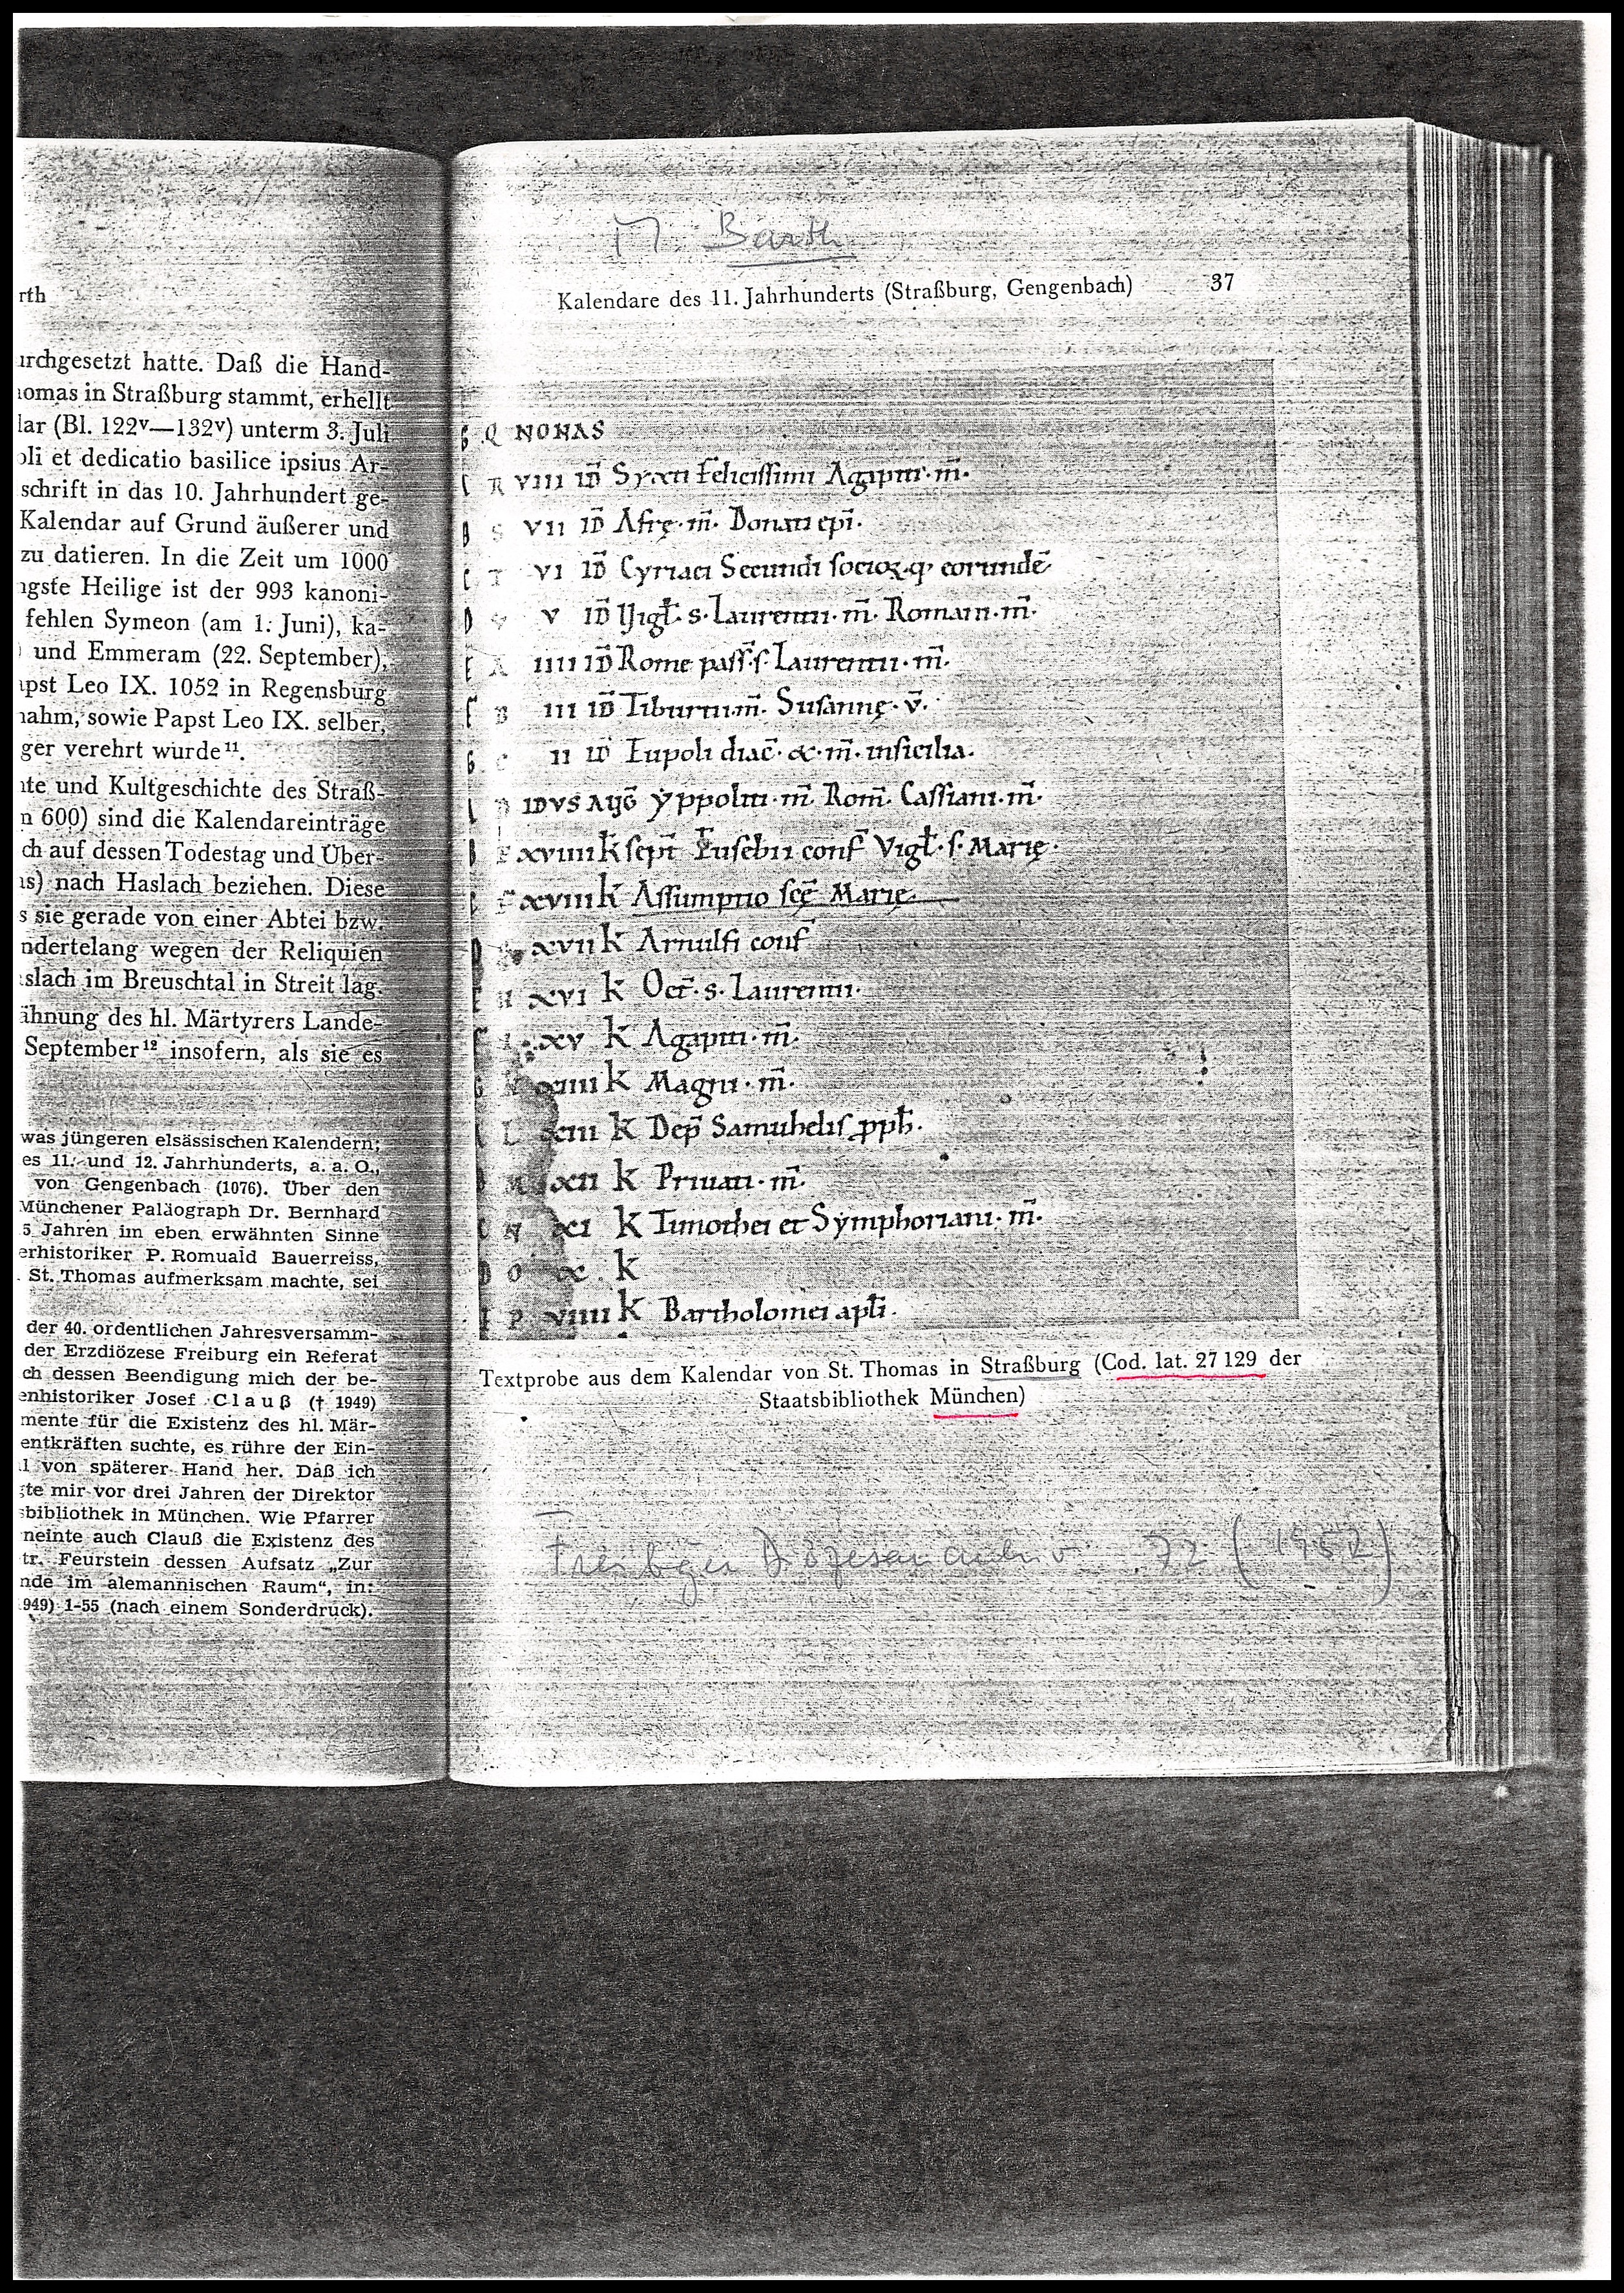 rth
urchgesetzt hatte. Daß die Hand-
omas in Straßburg stammt, erhellt
lar (Bl. 122v—132v) unterm 3. Juli
oli et dedicatio basilice ipsius Ar-
schrift in das 10. Jahrhundert ge-
Kalendar auf Grund äußerer und
zu datieren. In die Zeit um 1000
ngste Heilige ist der 993 kanoni-
fehlen Symeon (am 1. Juni), ka-
) und Emmeram (22. September),
apst Leo IX. 1052 in Regensburg
nahm, sowie Papst Leo IX. selber,
ger verehrt wurde 11.
hte und Kultgeschichte des Straß-
n 600) sind die Kalendareinträge
ch auf dessen Todestag und Über-
as) nach Haslach beziehen. Diese
s sie gerade von einer Abtei bzw.
ndertelang wegen der Reliquien
slach im Breuschtal in Streit lag.
ähnung des hl. Märtyrers Lande-
September 12 insofern, als sie es
was jüngeren elsässischen Kalendern;
es 11. und 12. Jahrhunderts, a. a. O.,
von Gengenbach (1076). Über den
Münchener Paläograph Dr. Bernhard
5 Jahren im eben erwähnten Sinne
erhistoriker P. Romuald Bauerreiss,
St. Thomas aufmerksam machte, sei
der 40. ordentlichen Jahresversamm-
der Erzdiözese Freiburg ein Referat
ch dessen Beendigung mich der be-
enhistoriker Josef Clauß († 1949)
mente für die Existenz des hl. Mär-
entkräften suchte, es rühre der Ein-
l von späterer Hand her. Daß ich
gte mir vor drei Jahren der Direktor
sbibliothek in München. Wie Pfarrer
neinte auch Clauß die Existenz des
tr. Feurstein dessen Aufsatz „Zur
nde im alemannischen Raum“, in:
949) 1-55 (nach einem Sonderdruck).
M. Barth
Kalendare des 11. Jahrhunderts (Straßburg, Gengenbach) 37
G Q NONAS
R VIII ID Syxti felicissimi Agapiti · m̄.
B S VII ID Afrę · m̄. Donati epī.
C T VI ID Cyriaci Secundi socioꝝ q' eorundē
D V V ID Vigł. s. Laurentii · m̄. Romani · m̄.
E A IIII ID Rome pass. s. Laurentii · m̄.
F B III ID Tiburtii · m̄. Susannę · v̄.
G C II ID Eupoli diac̄. & · m̄. in sicilia.
D IDVS AUG̅ Yppoliti · m̄. Rom̄. Cassiani · m̄.
B E XVIIII k sept̄ Eusebii conf̄ Vigł. s. Marię.
C F XVIII k Assumptio scę̄ Marię.
D XVII k Arnulfi conf̄
E H XVI k Oct̄. s. Laurentii.
F I XV k Agapiti · m̄.
G K XIIII k Magni · m̄.
L XIII k Dep̄ Samuhelis pph̄.
B M XII k Priuati · m̄.
C N XI k Timothei et Symphoriani · m̄.
D O X k
E P VIIII k Bartholomei apłi.
Textprobe aus dem Kalendar von St. Thomas in Straßburg (Cod. lat. 27 129 der
Staatsbibliothek München)
Freiburger Diözesanarchiv 72 (1952)